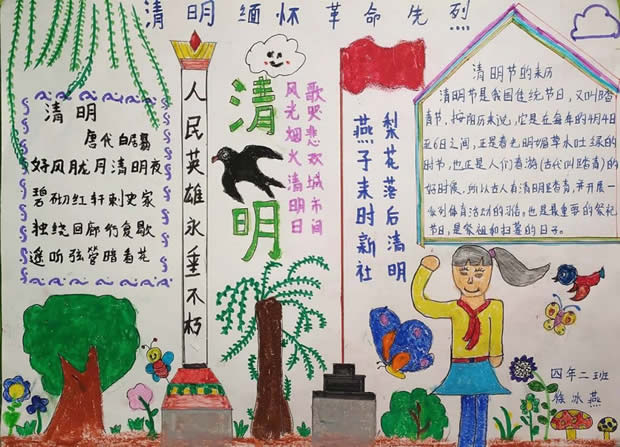 清明缅怀革命先烈
清明
唐代 白居易
好风胧月清明夜
碧砌红轩刺史家
独绕回廊行复歇
遥听弦管暗看花
人民英雄永垂不朽
清明
风光烟火清明日
歌哭悲欢城市间
燕子来时新社
梨花落后清明
清明节的来历
清明节是我国传统节日，又叫踏
青节，按阳历来说，它是在每年的4月4日
至6日之间，正是春光明媚草木吐绿的
时节，也正是人们春游(古代叫踏青)的
好时候，所以古人有清明踏青，并开展一
系列体育活动的习俗，也是最重要的祭祀
节日，是祭祖和扫墓的日子。
四年二班
徐冰燕